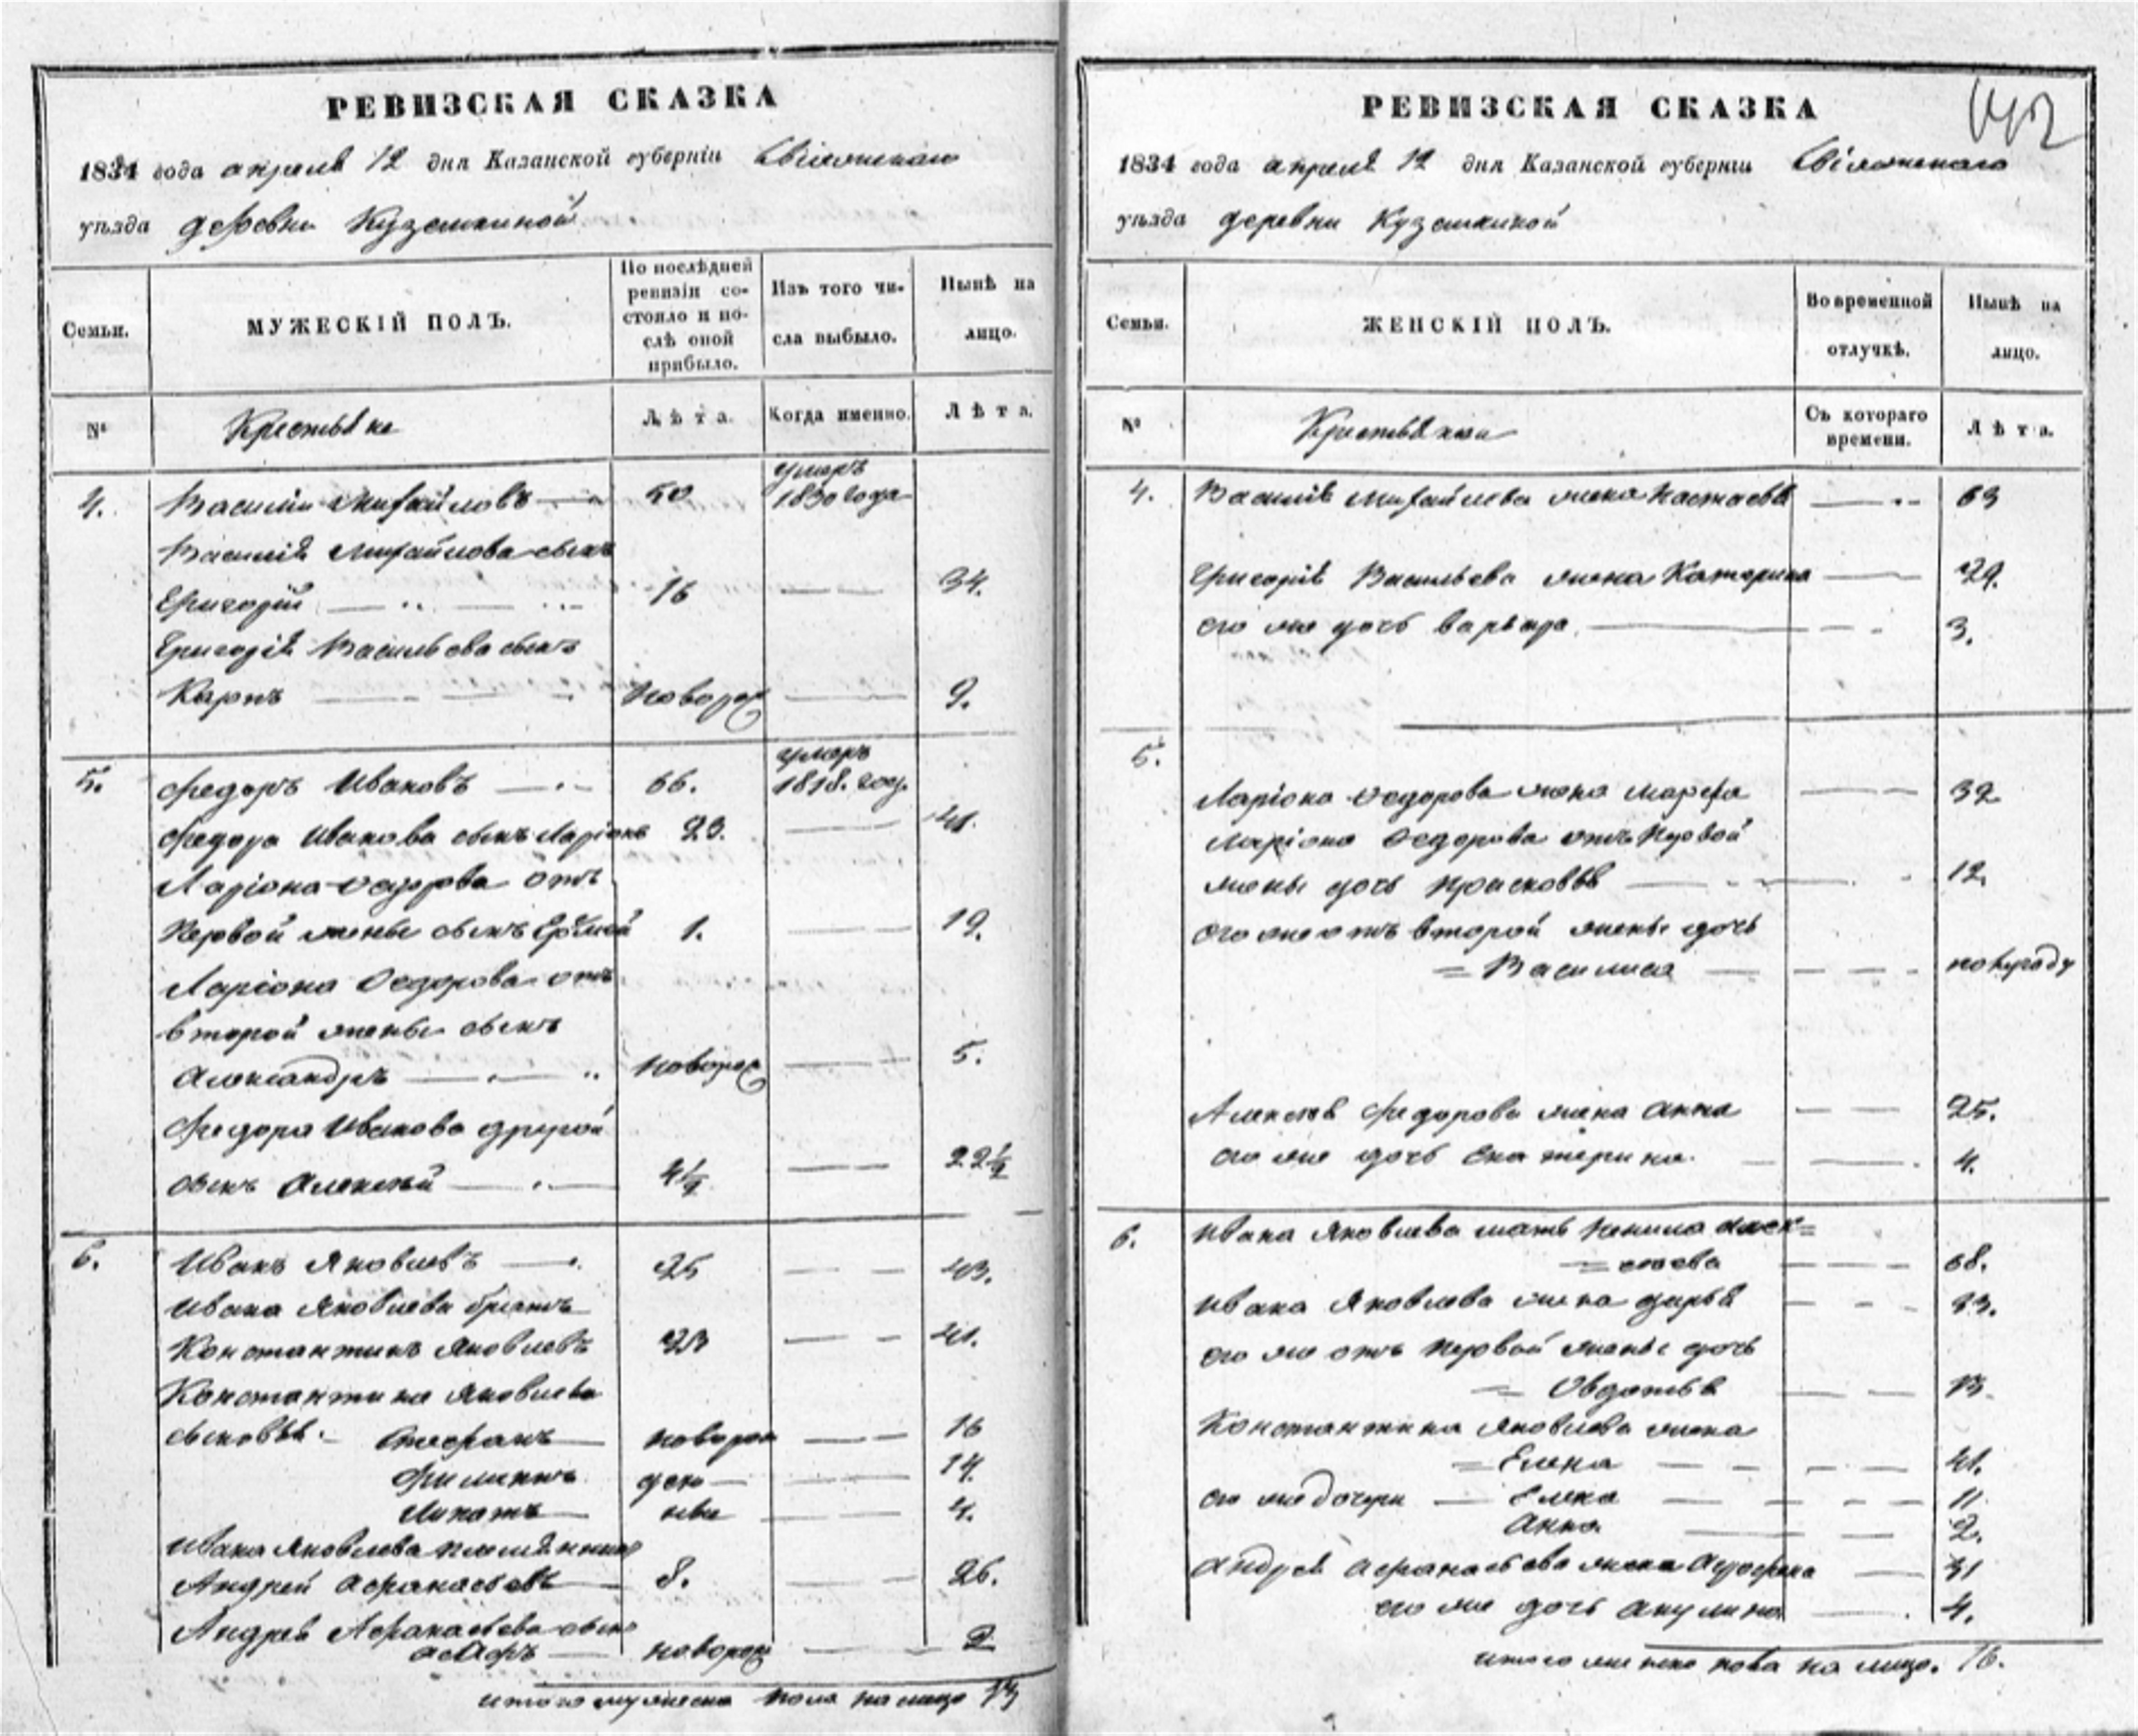 РЕВИЗСКАЯ СКАЗКА
1834 года апреля 12 дня Казанской губерніи Свіяжскаго
уѣзда деревни Куземкиной
Семьи.
МУЖЕСКІЙ ПОЛЪ.
По послѣдней ревизіи состояло и послѣ оной прибыло.
Изъ того числа выбыло.
Нынѣ на лицо.
№
Крестьяне
Лѣта.
Когда именно.
Лѣта.
4. Василий Михайловъ 50 умеръ 1830 года
Василія Михайлова сынъ
Григорій 16 34.
Григорія Васильева сынъ
Карпъ новорож 9.
5. Федоръ Ивановъ 66. умеръ 1818. году
Федора Иванова сынъ Ларіонъ 23. 41.
Ларіона Федорова отъ
первой жены сынъ 1. 19.
Ларіона Федорова отъ
второй жены сынъ
Александръ новорож 5.
Федора Иванова другой
сынъ Алексѣй 4½ 22½
6. Иванъ Яковлевъ 25 43.
Ивана Яковлева братъ
Константинъ Яковлевъ 23 41.
Константина Яковлева
сыновья. Стефанъ новорож 16
Филиппъ ден 14.
Липатъ ные 4.
Ивана Яковлева племянникъ
Андрей Афанасьевъ 8. 26.
Андрея Афанасьева сынъ
новорож 2
итого мужеска пола на лицо 13
РЕВИЗСКАЯ СКАЗКА
1834 года апреля 12 дня Казанской губерніи Свіяжскаго
уѣзда деревни Куземкиной
Семьи.
ЖЕНСКІЙ ПОЛЪ.
Во временной отлучкѣ.
Нынѣ на лицо.
№
Крестьянки
Съ котораго времени.
Лѣта.
4. Василія Михайлова жена Настасья 63
Григорія Васильева жена Катерина 29.
его же дочь Варвара 3.
5.
Ларіона Федорова жена Марфа 32
Ларіона Федорова отъ первой
жены дочь Просковья 12.
его же отъ второй жены дочь
= Василиса полугоду
Алексея Федорова жена Анна 25.
его же дочь Екатерина 4.
6. Ивана Яковлева мать Ненила Алек=
= сеева 68.
Ивана Яковлева жена Дарья 33.
его же отъ первой жены дочь
= Овдотья 13.
Константина Яковлева жена
= Елена 41.
его же дочери Елена 11
Анна 2.
Андрея Афанасьева жена 31
его же дочь Акулина 4.
итого женска пола на лицо. 16.